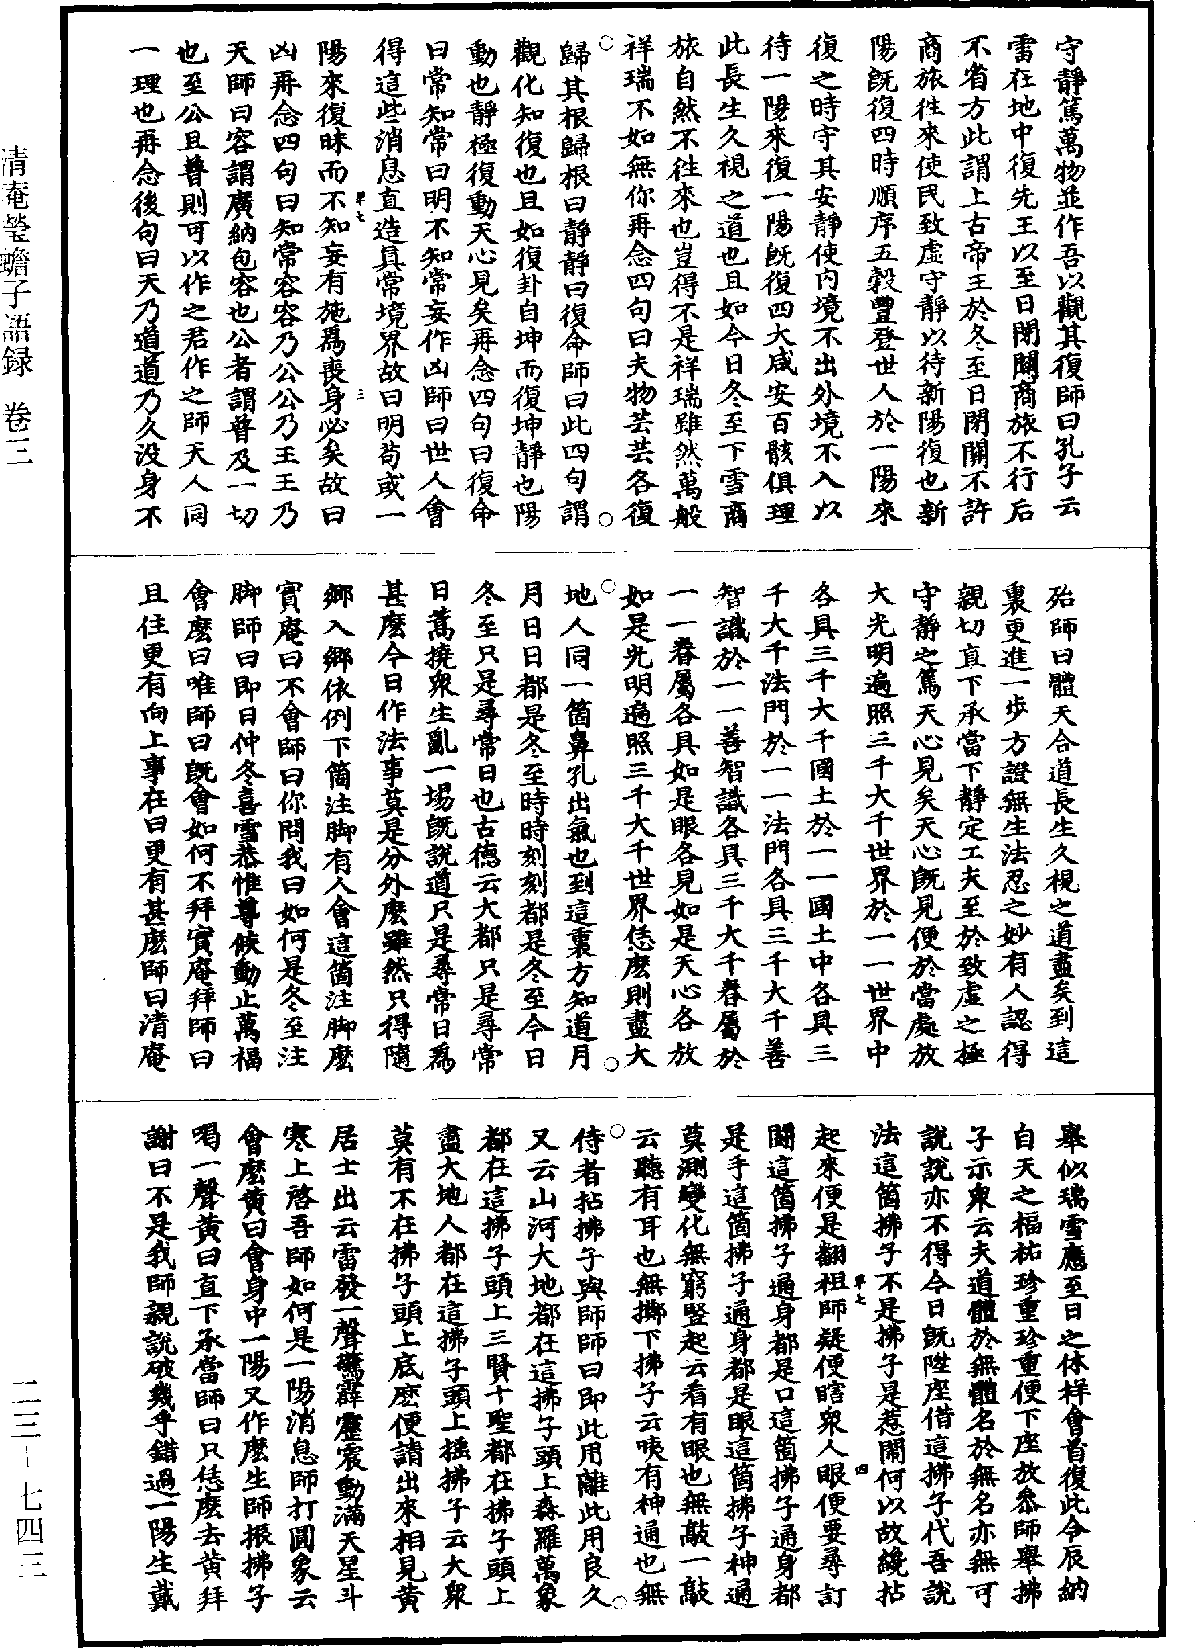 守靜篤萬物並作吾以觀其復師曰孔子云
雷在地中復先王以至日閉關商旅不行后
不省方此謂上古帝王於冬至日閉關不許
商旅往來使民致虛守靜以待新陽復也新
陽既復四時順序五穀豐登世人於一陽來
復之時守其安靜使內境不出外境不入以
待一陽來復一陽既復四大咸安百骸俱理
此長生久視之道也且如今日冬至下雪商
旅自然不往來也豈得不是祥瑞雖然萬般
祥瑞不如無你再念四句曰夫物芸芸各復
歸其根歸根曰靜靜曰復命師曰此四句謂
觀化知復也且如復卦自坤而復坤靜也陽
動也靜極復動天心見矣再念四句曰復命
曰常知常曰明不知常妄作凶師曰世人會
得這些消息直造真常境界故曰明苟或一
陽來復昧而不知妄有施爲喪身必矣故曰
凶再念四句曰知常容容乃公公乃王王乃
天師曰容謂廣納包容也公者謂普及一切
也至公且普則可以作之君作之師天人同
一理也再念後句曰天乃道道乃久沒身不
殆師曰體天合道長生久視之道盡矣到這
裏更進一步方證無生法忍之妙有人認得
親切直下承當下靜定工夫至於致虛之極
守靜之篤天心見矣天心既見便於當處放
大光明遍照三千大千世界於一一世界中
各具三千大千國土於一一國土中各具三
千大千法門於一一法門各具三千大千善
智識於一一善智識各具三千大千眷屬於
一一眷屬各具如是眼各見如是天心各放
如是光明遍照三千大千世界恁麽則盡大
地人同一箇鼻孔出氣也到這裏方知道月
月日日都是冬至時時刻刻都是冬至今日
冬至只是尋常日也古德云大都只是尋常
日驀撓衆生亂一場既說道只是尋常日爲
甚麽今日作法事莫是分外麽雖然只得隨
鄉入鄉依例下箇注脚有人會這箇注脚麽
實庵曰不會師曰你問我曰如何是冬至注
脚師曰即日仲冬喜雪恭惟尊候動止萬福
會麽曰唯師曰既會如何不拜實庵拜師曰
且住更有向上事在曰更有甚麽師曰清庵
舉似瑞雪應至日之休祥會首復此今辰納
自天之福祐珍重珍重便下座放叅師舉拂
子示衆云夫道體於無體名於無名亦無可
說說亦不得今日既陞座借這拂子代吾說
法這箇拂子不是拂子是惹鬧何以故纔拈
起來便是翻祖師疑便瞎衆人眼便要尋訂
鬭這箇拂子通身都是口這箇拂子通身都
是手這箇拂子通身都是眼這箇拂子神通
莫測變化無窮竪起云看有眼也無敲一敲
云聽有耳也無擲下拂子云咦有神通也無
侍者拈拂子與師師曰即此用離此用良久
又云山河大地都在這拂子頭上森羅萬象
都在這拂子頭上三賢十聖都在拂子頭上
盡大地人都在這拂子頭上搖拂子云大衆
莫有不在拂子頭上底麽便請出來相見黃
居士出云雷發一聲驚霹靂震動滿天星斗
寒上啓吾師如何是一陽消息師打圓象云
會麽黃曰會身中一陽又作麽生師振拂子
喝一聲黃曰直下承當師曰只恁麽去黃拜
謝曰不是我師親說破幾乎錯過一陽生戴
清庵瑩蟾子語録 卷三
二三-七四二